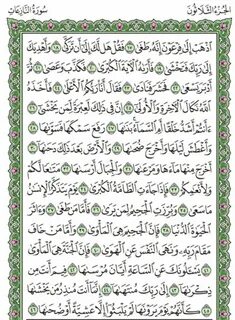 الجُزْءُ الثَّلَاثُونَ
سُورَةُ النَّازِعَاتِ
ٱذْهَبْ إِلَىٰ فِرْعَوْنَ إِنَّهُۥ طَغَىٰ ١٧ فَقُلْ هَل لَّكَ إِلَىٰٓ أَن تَزَكَّىٰ ١٨ وَأَهْدِيَكَ
إِلَىٰ رَبِّكَ فَتَخْشَىٰ ١٩ فَأَرَىٰهُ ٱلْءَايَةَ ٱلْكُبْرَىٰ ٢٠ فَكَذَّبَ وَعَصَىٰ ٢١ ثُمَّ
أَدْبَرَ يَسْعَىٰ ٢٢ فَحَشَرَ فَنَادَىٰ ٢٣ فَقَالَ أَنَا۠ رَبُّكُمُ ٱلْأَعْلَىٰ ٢٤ فَأَخَذَهُ
ٱللَّهُ نَكَالَ ٱلْءَاخِرَةِ وَٱلْأُولَىٰٓ ٢٥ إِنَّ فِى ذَٰلِكَ لَعِبْرَةً لِّمَن يَخْشَىٰٓ ٢٦
ءَأَنتُمْ أَشَدُّ خَلْقًا أَمِ ٱلسَّمَآءُ بَنَىٰهَا ٢٧ رَفَعَ سَمْكَهَا فَسَوَّىٰهَا ٢٨
وَأَغْطَشَ لَيْلَهَا وَأَخْرَجَ ضُحَىٰهَا ٢٩ وَٱلْأَرْضَ بَعْدَ ذَٰلِكَ دَحَىٰهَآ ٣٠
أَخْرَجَ مِنْهَا مَآءَهَا وَمَرْعَىٰهَا ٣١ وَٱلْجِبَالَ أَرْسَىٰهَا ٣٢ مَتَٰعًا لَّكُمْ
وَلِأَنْعَٰمِكُمْ ٣٣ فَإِذَا جَآءَتِ ٱلطَّآمَّةُ ٱلْكُبْرَىٰ ٣٤ يَوْمَ يَتَذَكَّرُ ٱلْإِنسَٰنُ
مَا سَعَىٰ ٣٥ وَبُرِّزَتِ ٱلْجَحِيمُ لِمَن يَرَىٰ ٣٦ فَأَمَّا مَن طَغَىٰ ٣٧ وَءَاثَرَ
ٱلْحَيَوٰةَ ٱلدُّنْيَا ٣٨ فَإِنَّ ٱلْجَحِيمَ هِىَ ٱلْمَأْوَىٰ ٣٩ وَأَمَّا مَنْ خَافَ
مَقَامَ رَبِّهِۦ وَنَهَى ٱلنَّفْسَ عَنِ ٱلْهَوَىٰ ٤٠ فَإِنَّ ٱلْجَنَّةَ هِىَ ٱلْمَأْوَىٰ ٤١
يَسْـَٔلُونَكَ عَنِ ٱلسَّاعَةِ أَيَّانَ مُرْسَىٰهَا ٤٢ فِيمَ أَنتَ مِن
ذِكْرَىٰهَآ ٤٣ إِلَىٰ رَبِّكَ مُنتَهَىٰهَآ ٤٤ إِنَّمَآ أَنتَ مُنذِرُ مَن يَخْشَىٰهَا
٤٥ كَأَنَّهُمْ يَوْمَ يَرَوْنَهَا لَمْ يَلْبَثُوٓا۟ إِلَّا عَشِيَّةً أَوْ ضُحَىٰهَا ٤٦